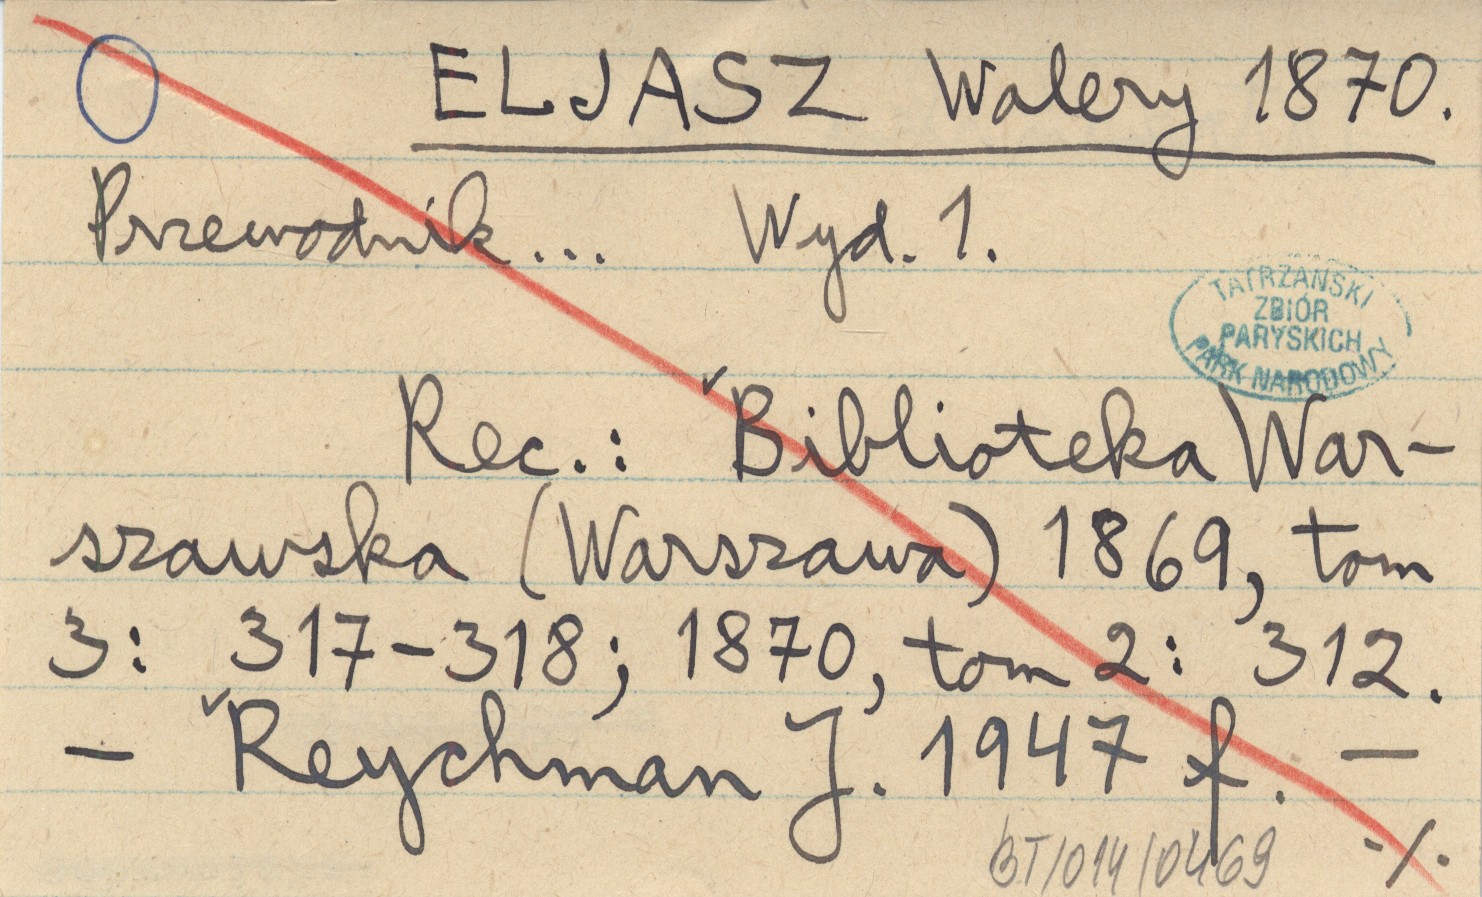 ELJASZ Walery 1870.
Przewodnik... Wyd. 1.
TATRZAŃSKI
ZBIÓR
PARYSKICH
PARK NARODOWY
Rec.: Biblioteka War-
szawska (Warszawa) 1869, tom
3: 317-318; 1870, tom 2: 312.
— Reychman J. 1947 f. —
BT/014/0469 ./.